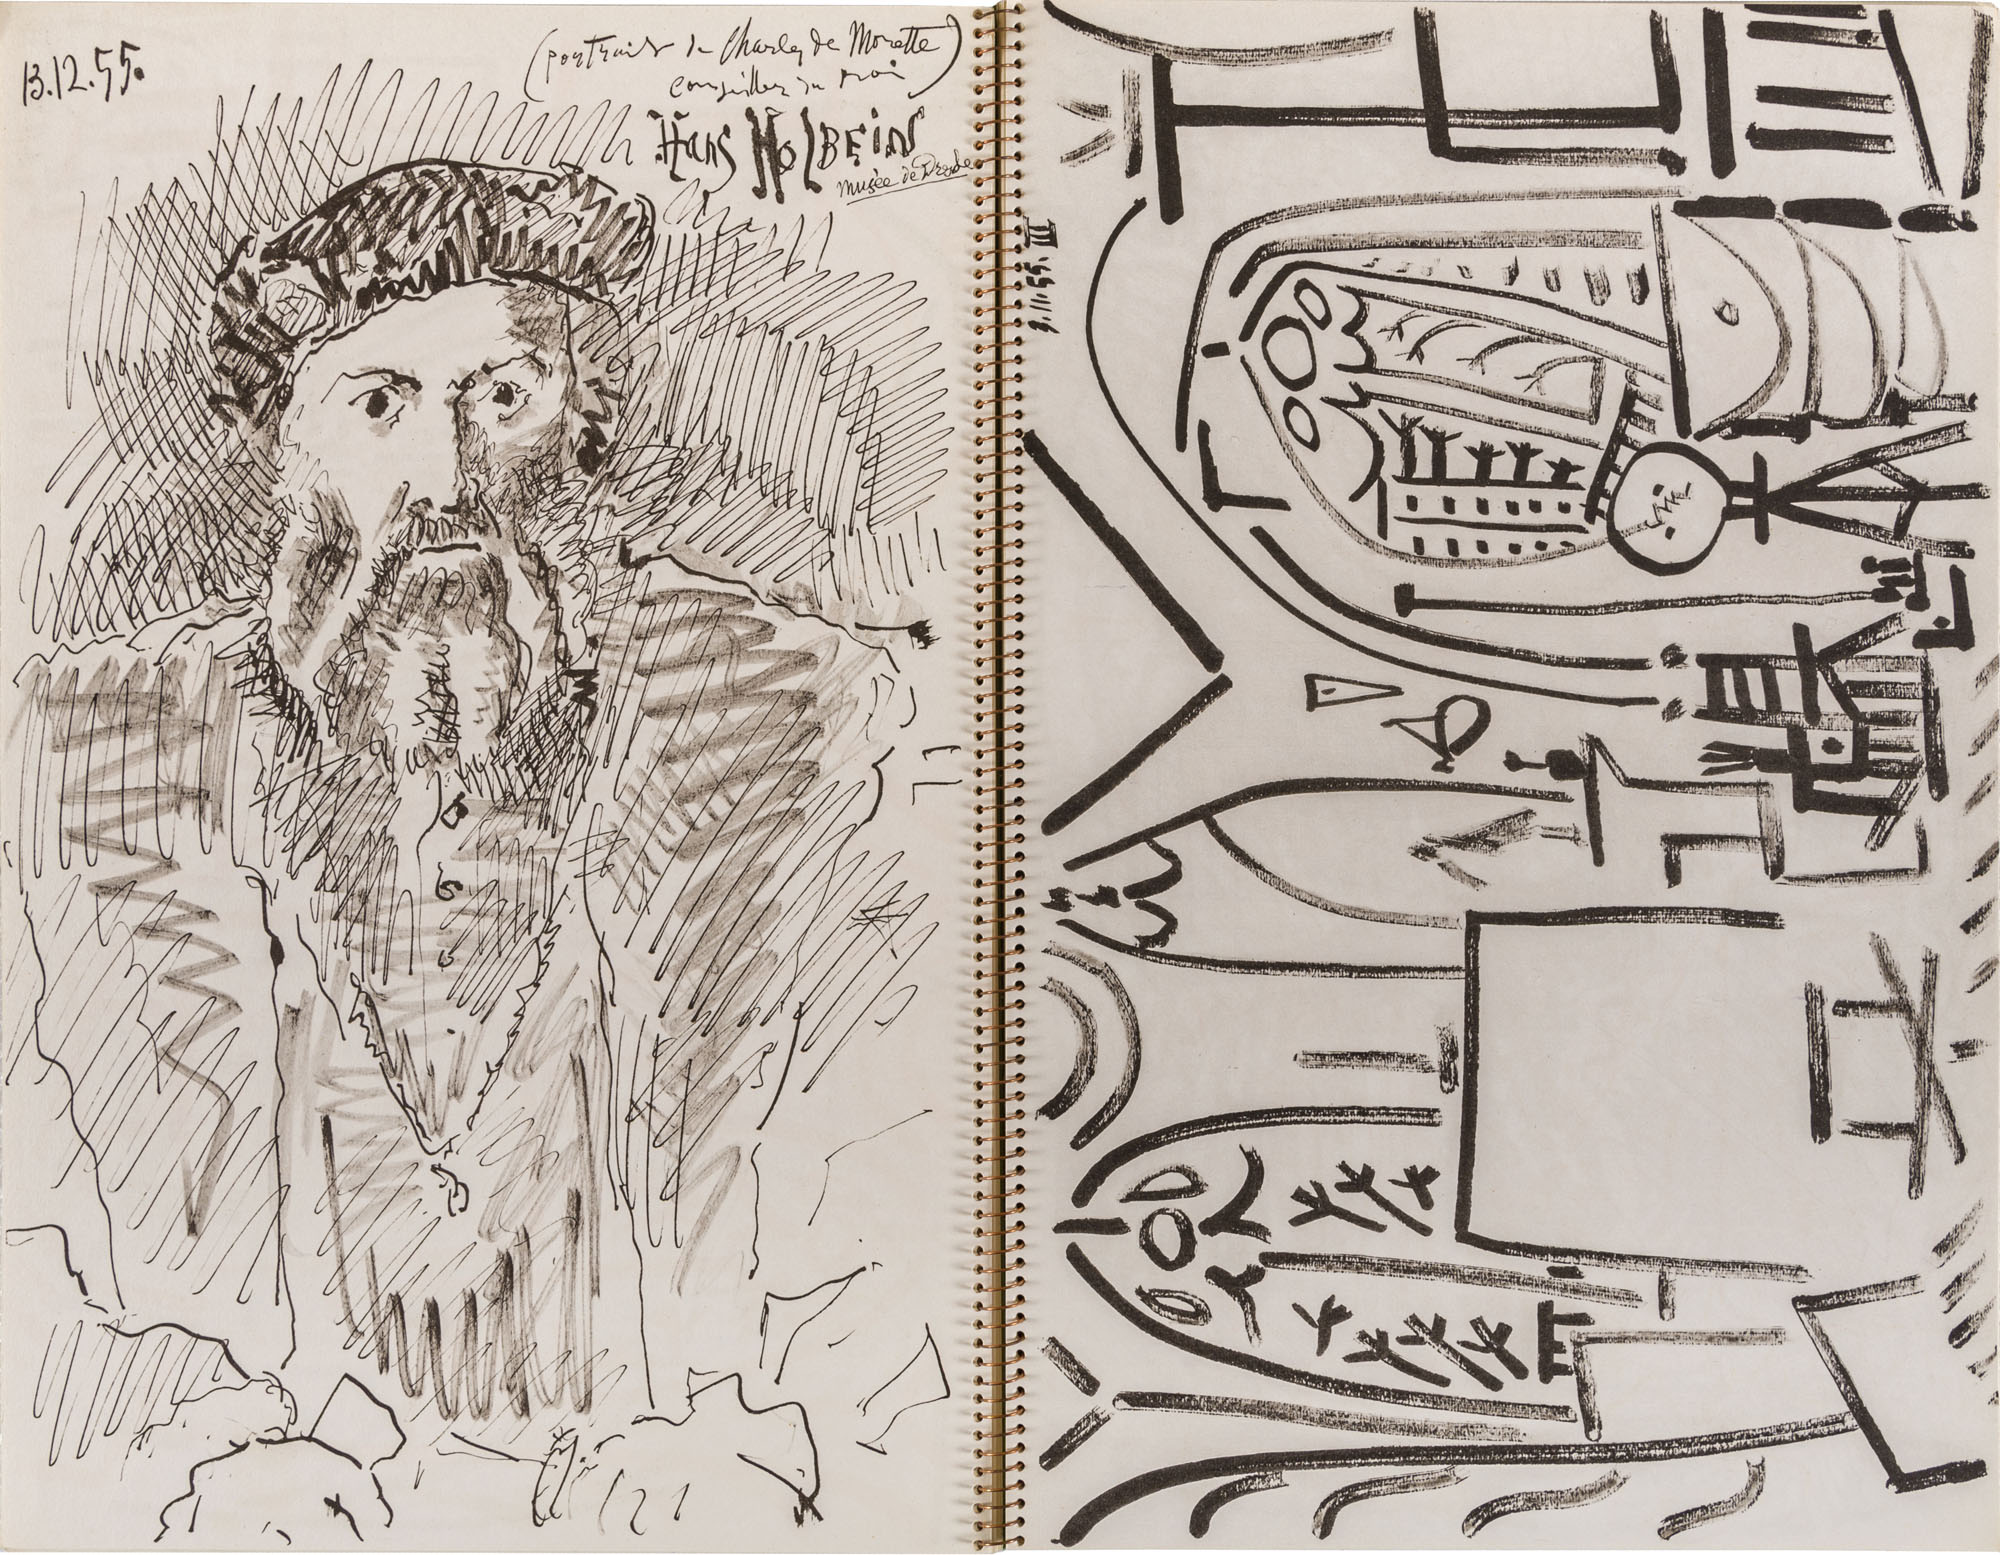 13.12.55.
(portrait de Charles de Morette
conseiller du roi)
Hans HolBEiN
musée de Dresde
3.11.55. III